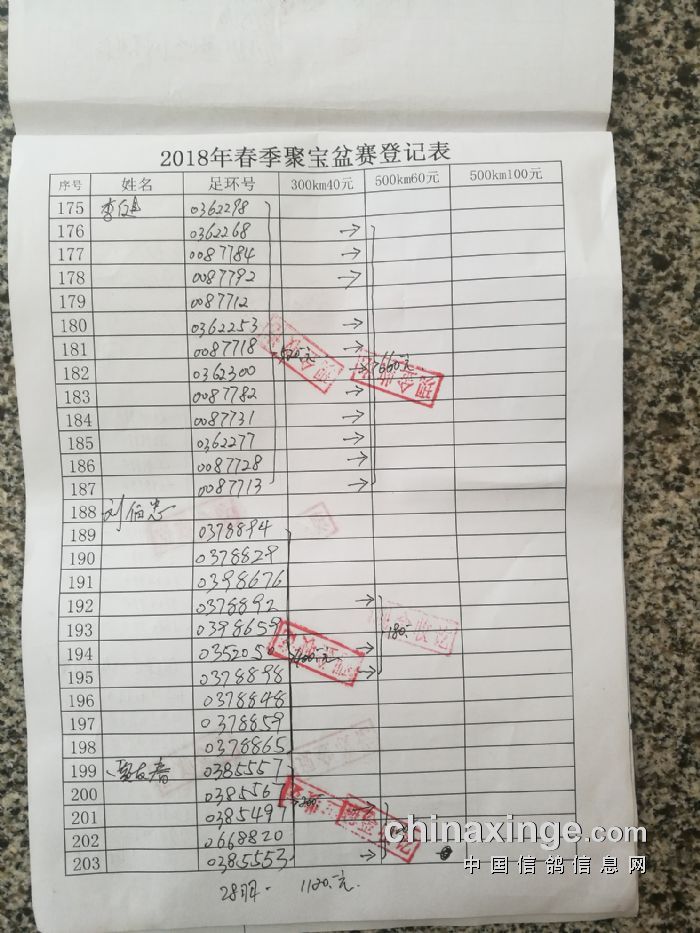 2018年春季聚宝盆赛登记表
序号 姓名 足环号 300km40元 500km60元 500km100元
175 0362298
176 0362268 →
177 0087784 →
178 0087792 →
179 0087712
180 0362253 →
181 0087718 →
182 0362300 → 660元
183 0087782 →
184 0087731 →
185 0362277 →
186 0087728 →
187 0087713 →
188 刘伯忠
189 0378894
190 0378829
191 0398676
192 0378892 →
193 0398659 180
194 035205 →
195 0378898 →
196 0378848
197 0378859
198 0378865
199 0385557
200 038556
201 0385497
202 0668820
203 0385553 →
28羽. 1120元
chinaxinge.com
中国信鸽信息网